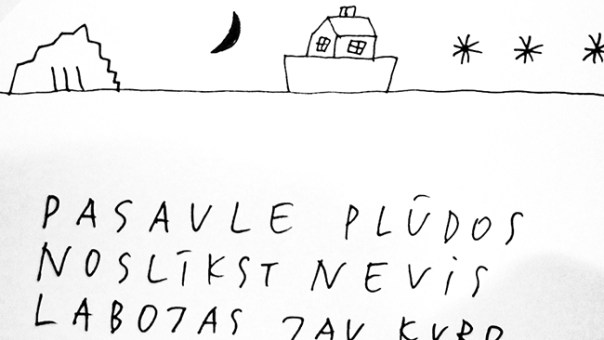 PASAULE PLŪDOS
NOSLĪKST NEVIS
LABOJAS JAU KURO